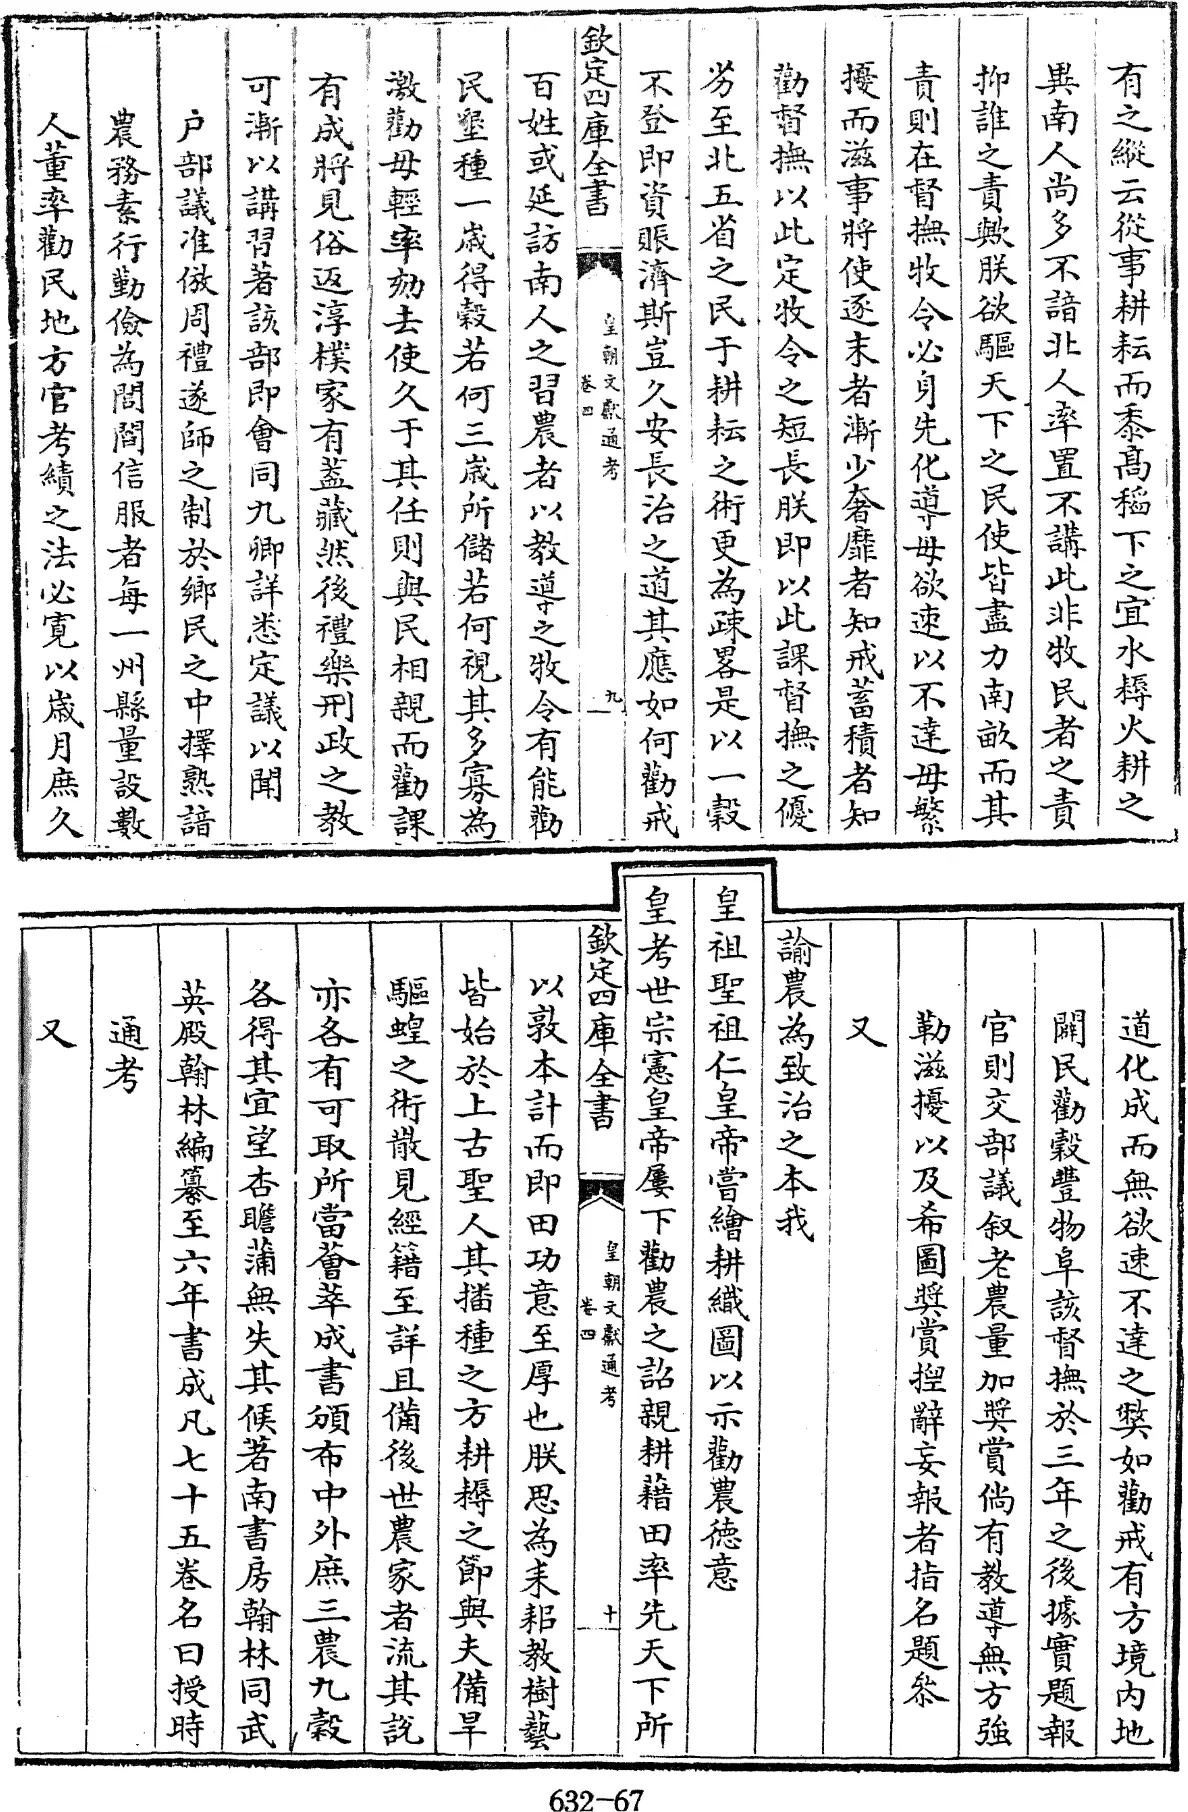 有之縱云從事耕耘而黍髙稻下之宜水耨火耕之
異南人尚多不諳北人率置不講此非牧民者之責
抑誰之責歟朕欲驅天下之民使皆盡力南畝而其
責則在督撫牧令必身先化導毋欲速以不達毋繁
擾而滋事將使逐末者漸少奢靡者知戒蓄積者知
勸督撫以此定牧令之短長朕即以此課督撫之優
劣至北五省之民于耕耘之術更為疎畧是以一穀
不登即資賑濟斯豈久安長治之道其應如何勸戒
欽定四庫全書
皇朝文獻通考
卷四
九
百姓或延訪南人之習農者以教導之牧令有能勸
民墾種一歲得穀若何三歲所儲若何視其多寡為
激勸毋輕率劾去使久于其任則與民相親而勸課
有成將見俗返淳樸家有葢藏然後禮樂刑政之教
可漸以講習著該部即會同九卿詳悉定議以聞
户部議准倣周禮遂師之制於鄉民之中擇熟諳
農務素行勤儉為閭閻信服者每一州縣量設數
人董率勸民地方官考績之法必寛以歲月庶久
道化成而無欲速不達之弊如勸戒有方境内地
闢民勸穀豐物阜該督撫於三年之後據實題報
官則交部議叙老農量加奬賞倘有教導無方強
勒滋擾以及希圖奬賞捏辭妄報者指名題叅
又
諭農為致治之本我
皇祖聖祖仁皇帝嘗繪耕織圖以示勸農徳意
皇考世宗憲皇帝屢下勸農之詔親耕藉田率先天下所
欽定四庫全書
皇朝文獻通考
卷四
十
以敦本計而即田功意至厚也朕思為耒耜教樹藝
皆始於上古聖人其播種之方耕耨之節與夫備旱
驅蝗之術散見經籍至詳且備後世農家者流其説
亦各有可取所當薈萃成書頒布中外庶三農九穀
各得其宜望杏瞻蒲無失其候著南書房翰林同武
英殿翰林編纂至六年書成凡七十五卷名曰授時
通考
又
632-67